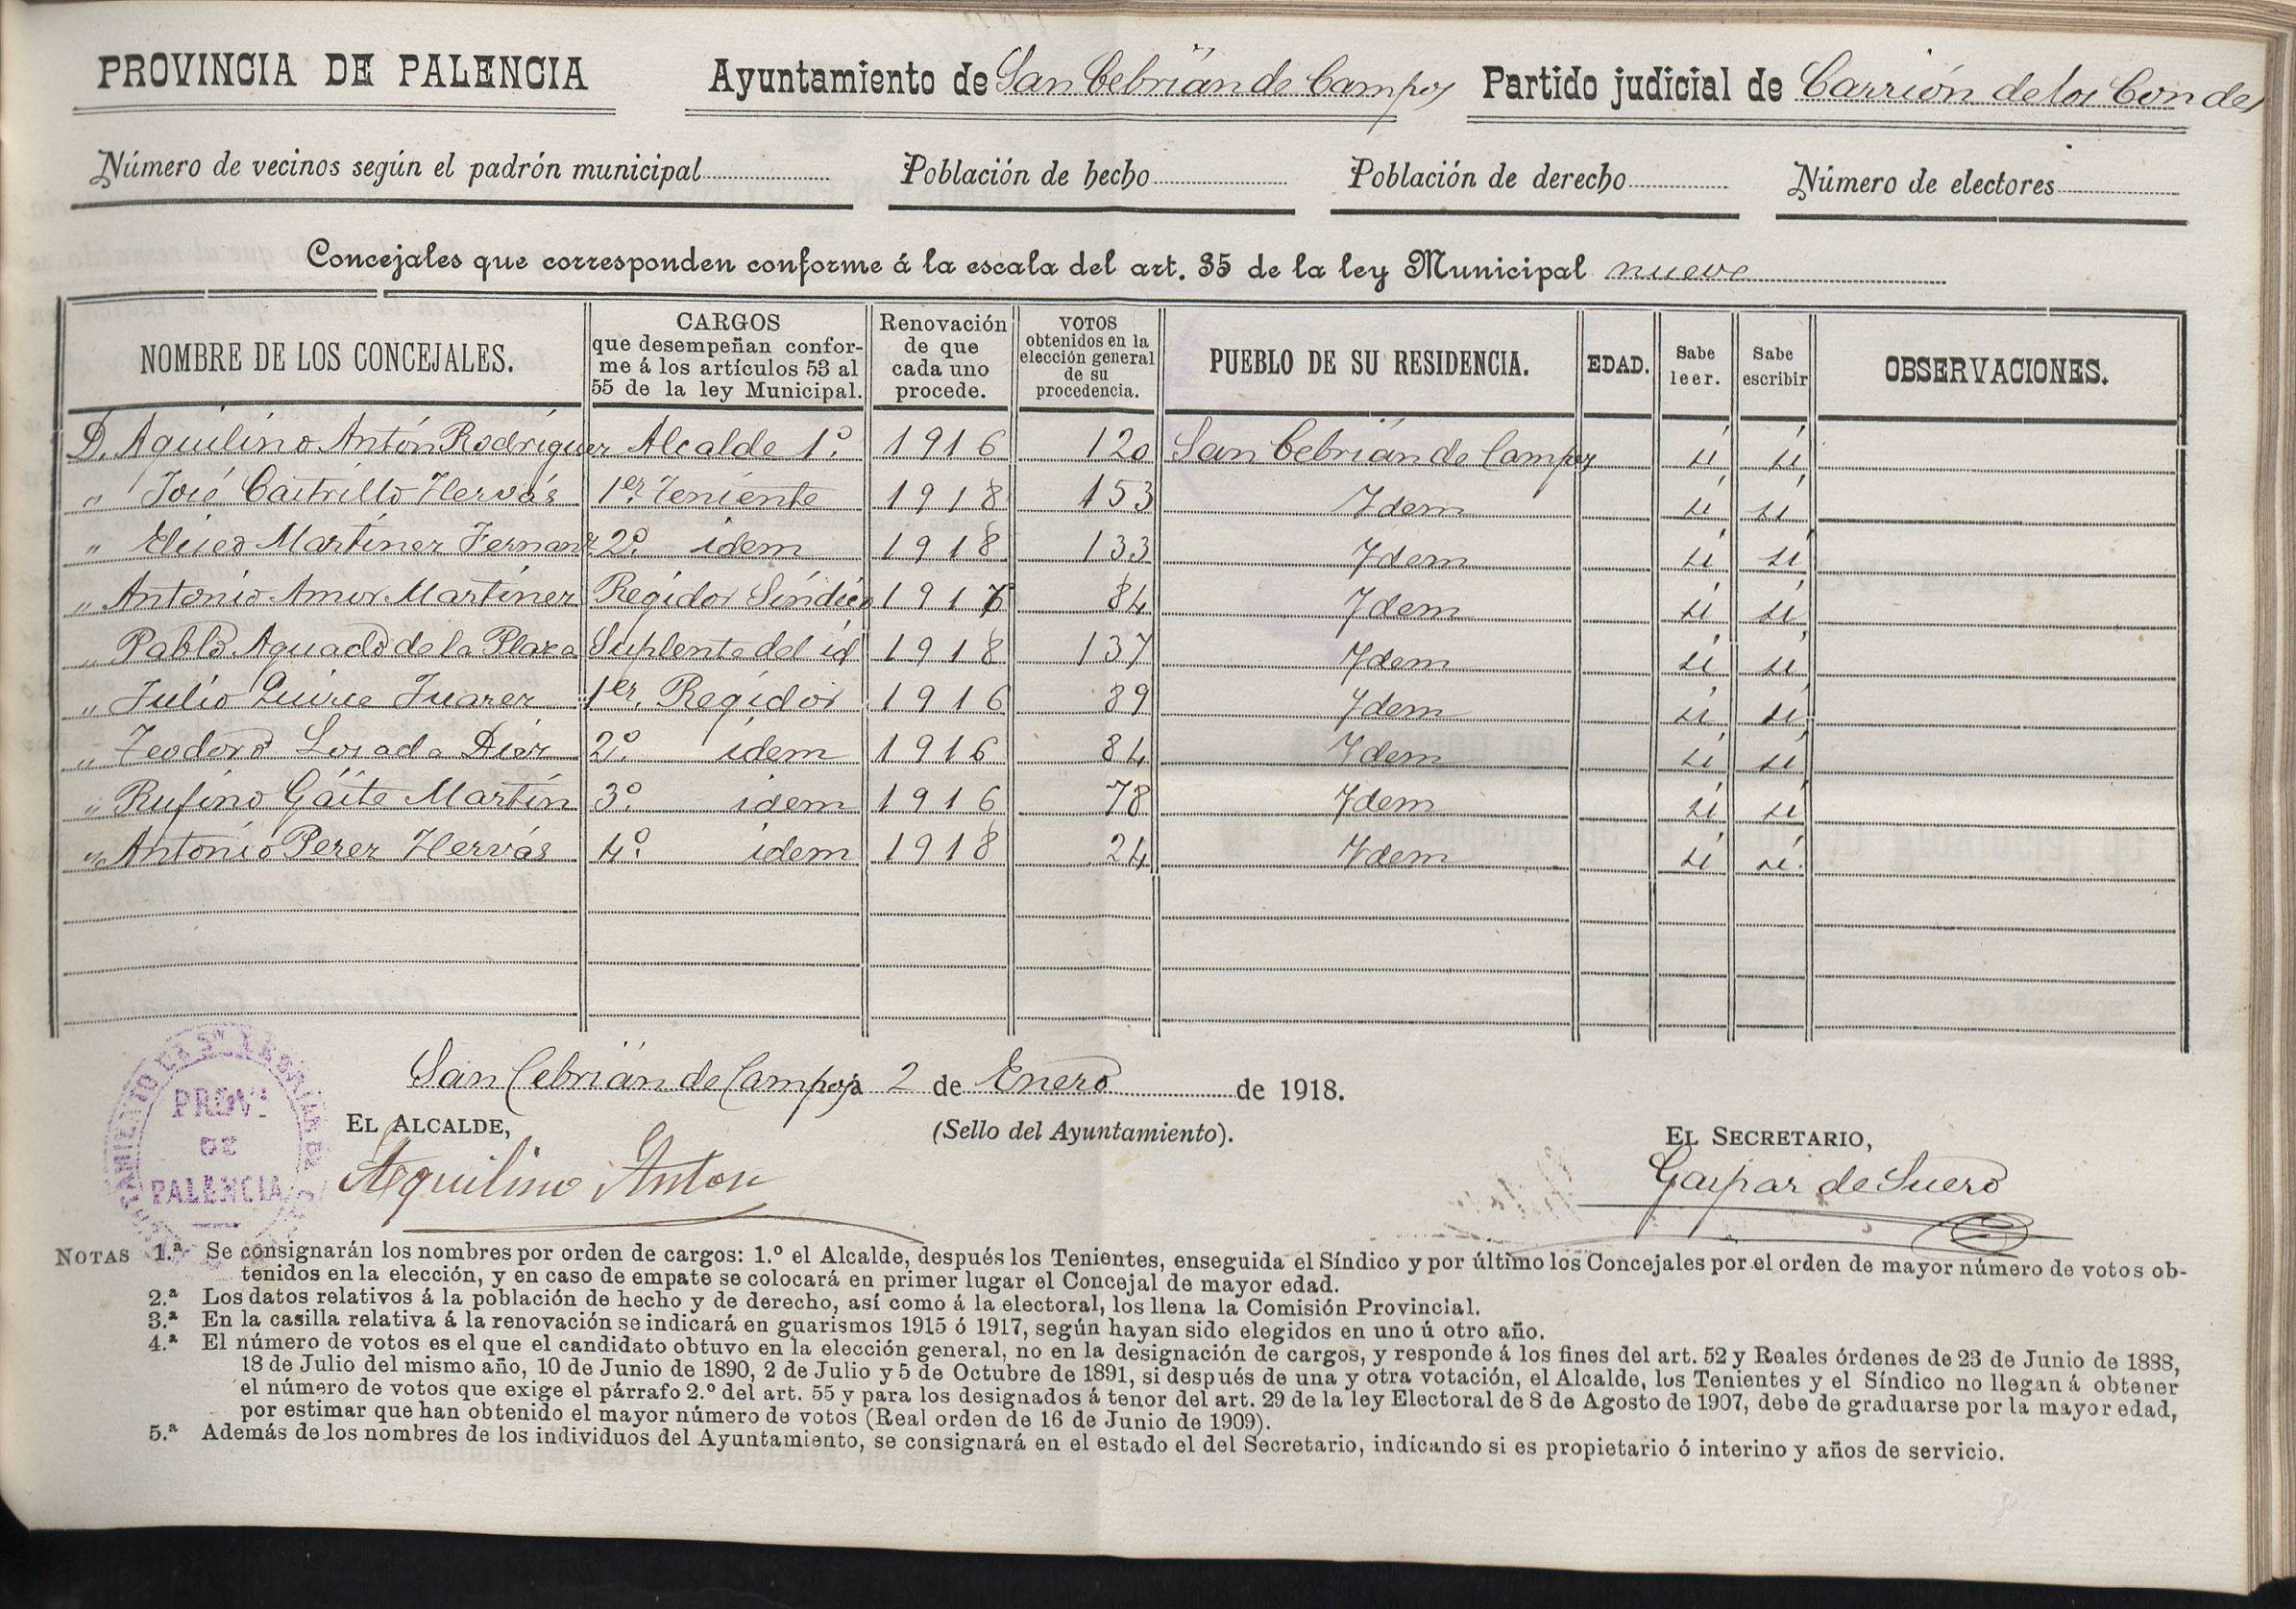 PROVINCIA DE PALENCIA Ayuntamiento de San Cebrián de Campos Partido judicial de Carrión de los Condes
Número de vecinos según el padrón municipal Población de hecho Población de derecho Número de electores
Concejales que corresponden conforme á la escala del art. 35 de la ley Municipal nueve
NOMBRE DE LOS CONCEJALES. CARGOS que desempeñan conforme á los artículos 53 al 55 de la ley Municipal. Renovación de que cada uno procede. VOTOS obtenidos en la elección general de su procedencia. PUEBLO DE SU RESIDENCIA. EDAD. Sabe leer. Sabe escribir OBSERVACIONES.
D. Aquilino Antón Rodríguez Alcalde 1.º 1916 120 San Cebrián de Campos sí sí
" José Castrillo Hervás 1er Teniente 1918 153 Idem sí sí
" Eliseo Martinez Fernanz 2º. idem 1918 133 Idem sí sí
" Antonio Amor Martinez Regidor Síndico 1916 84 Idem sí sí
" Pablo Aguado de la Plaza Suplente del id 1918 137 Idem sí sí
" Julio Quirce Juarez 1er. Regidor 1916 89 Idem sí sí
" Teodoro Losada Diez 2º. idem 1916 84 Idem sí sí
" Rufino Gáite Martín 3º. idem 1916 78 Idem sí sí
" Antonio Perez Hervás 4º. idem 1918 24 Idem sí sí
San Cebrián de Campos á 2 de Enero de 1918.
EL ALCALDE, (Sello del Ayuntamiento). EL SECRETARIO,
Aquilino Anton Gaspar de Suero
PROVª
DE
PALENCIA
NOTAS 1.ª Se consignarán los nombres por orden de cargos: 1.º el Alcalde, después los Tenientes, enseguida el Síndico y por último los Concejales por el orden de mayor número de votos ob-
tenidos en la elección, y en caso de empate se colocará en primer lugar el Concejal de mayor edad.
2.ª Los datos relativos á la población de hecho y de derecho, así como á la electoral, los llena la Comisión Provincial.
3.ª En la casilla relativa á la renovación se indicará en guarismos 1915 ó 1917, según hayan sido elegidos en uno ú otro año.
4.ª El número de votos es el que el candidato obtuvo en la elección general, no en la designación de cargos, y responde á los fines del art. 52 y Reales órdenes de 23 de Junio de 1888,
18 de Julio del mismo año, 10 de Junio de 1890, 2 de Julio y 5 de Octubre de 1891, si después de una y otra votación, el Alcalde, los Tenientes y el Síndico no llegan á obtener
el número de votos que exige el párrafo 2.º del art. 55 y para los designados á tenor del art. 29 de la ley Electoral de 8 de Agosto de 1907, debe de graduarse por la mayor edad,
por estimar que han obtenido el mayor número de votos (Real orden de 16 de Junio de 1909).
5.ª Además de los nombres de los individuos del Ayuntamiento, se consignará en el estado el del Secretario, indicando si es propietario ó interino y años de servicio.